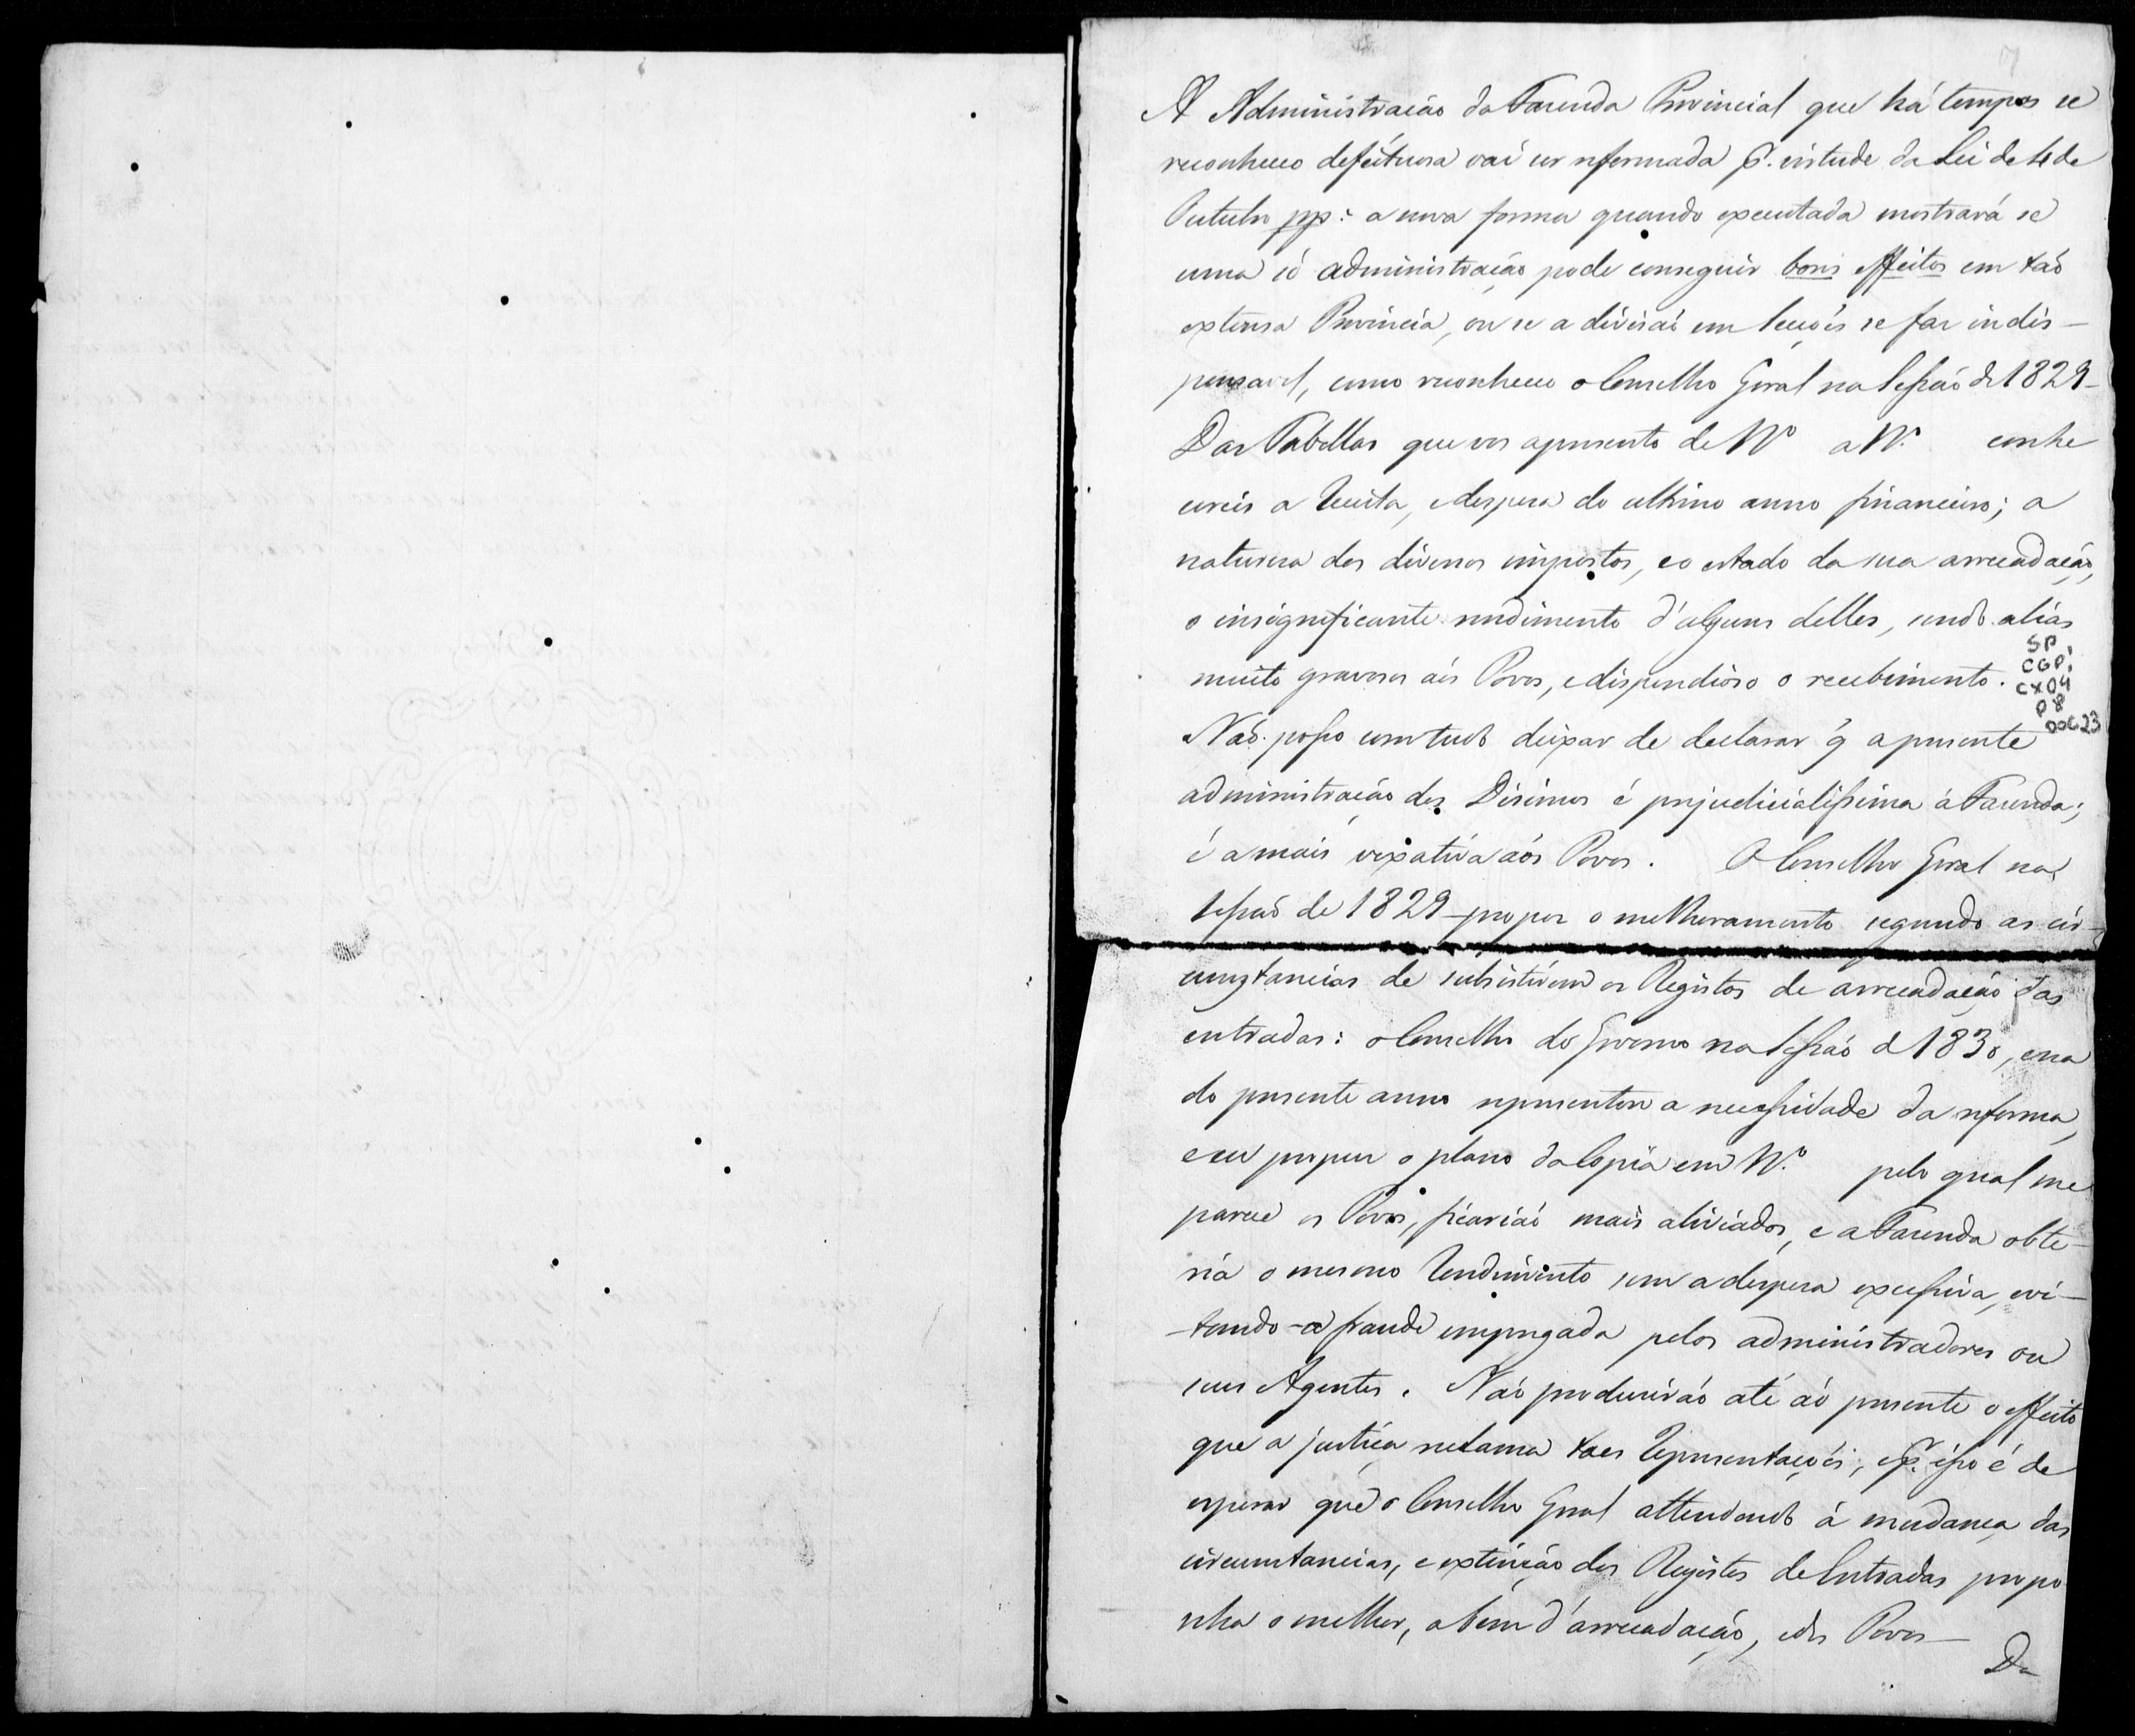 7
A Administração da Fazenda Provincial que há tempos se
reconheceo defeituosa vai ser reformada pr. virtude da Lei de 4 de
Outubro pp: a nova forma quando executada mostrará se
uma só administração pode conseguir bons effeitos em taõ
extensa Provincia, ou se a divisaõ em Secçoẽs se faz indis-
pensavel, como reconheceo o Conselho Geral na Sessaõ de 1829-
Das Tabellas que vos apresento de Nº a Nº conhe
cereis a Receita, e despeza do ultimo anno financeiro; a
natureza dos diversos impostos, e o estado da sua arrecadação,
o insignificante rendimento d'alguns delles, sendo aliás
muito gravosos aós Povos, e dispendioso o recebimento.
SP,
CGP,
CX04
P8
DOC23
Naõ posso com tudo deixar de declarar q̃ a presente
administração dos Dizimos é prejudicialissima á Fazenda;
é a mais vexativa aós Povos. O Conselho Geral na
Sessaõ de 1829-propoz o melhoramento segundo as cir-
cumstancias de subsistirem os Registos de arrecadação das
entradas: o Conselho do Governo na Sessaõ d 1830, e na
do presente anno representou a necessidade da reforma,
e eu propuz o plano da Copia em N.º pelo qual me
parece os Povos, ficariaõ mais aliviados, e a Fazenda obte-
ria o mesmo Rendimento sem a despeza excessiva, evi-
-tando-a fraude empregada pelos administradores ou
seus Agentes. Naõ produziraõ até aó presente o effeito
que a justiça reclama taes Representaçoẽs, e pr. isso é de
esperar que o Conselho Geral attendendo á mudança das
circumstancias, e extinção dos Registos de Entradas propo
nha o melhor, a bem d'arrecadação, e dos Povos-
Da